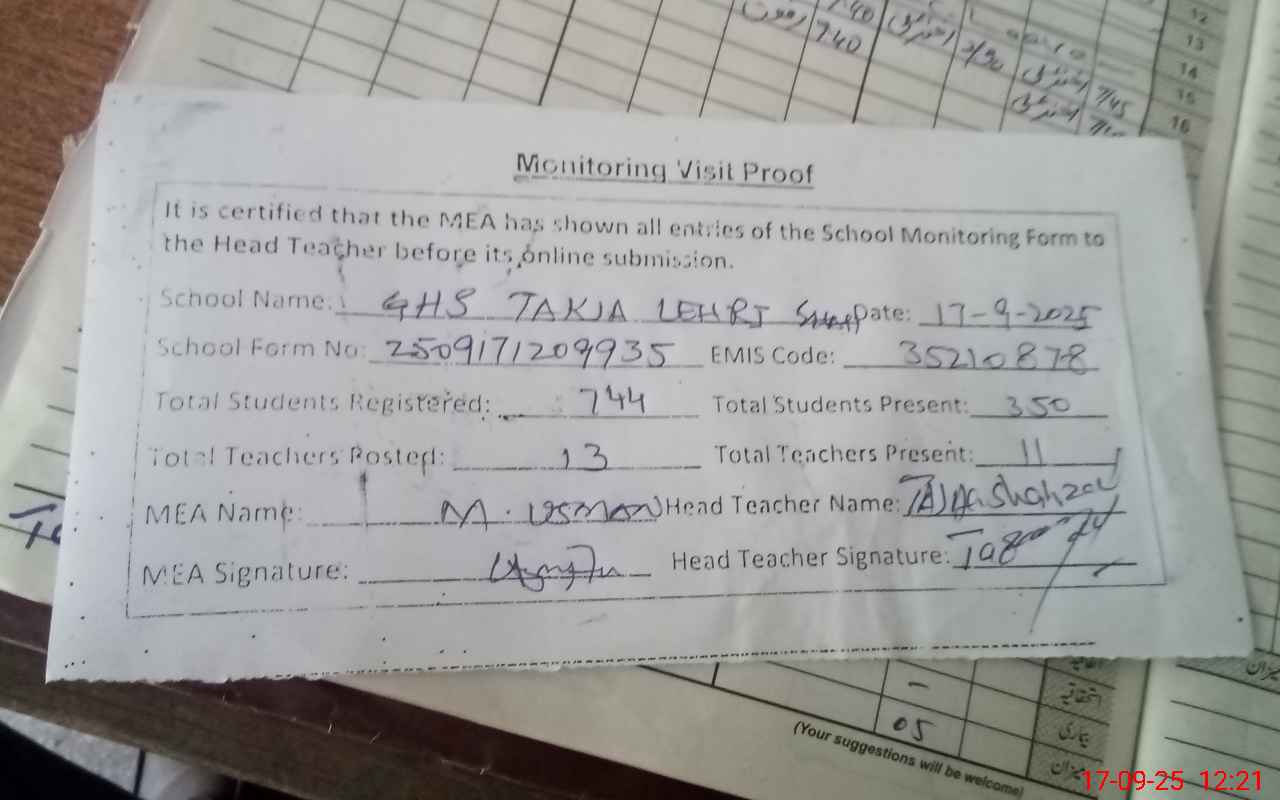 7.40
7.40
12
13
14
15
16
7/45
Monitoring Visit Proof
It is certified that the MEA has shown all entries of the School Monitoring Form to
the Head Teacher before its online submission.
School Name: GHS TAKIA LEHRI Date: 17-9-2025
School Form No: 2509171209935 EMIS Code: 35210878
Total Students Registered: 744 Total Students Present: 350
Total Teachers Posted: 13 Total Teachers Present: 11
MEA Name: M. USMAN Head Teacher Name:
MEA Signature: Head Teacher Signature:
اتفاقیہ
استحقاقیہ
بیماری
05
میزان
میزان
(Your suggestions will be welcome)
17-09-25 12:21